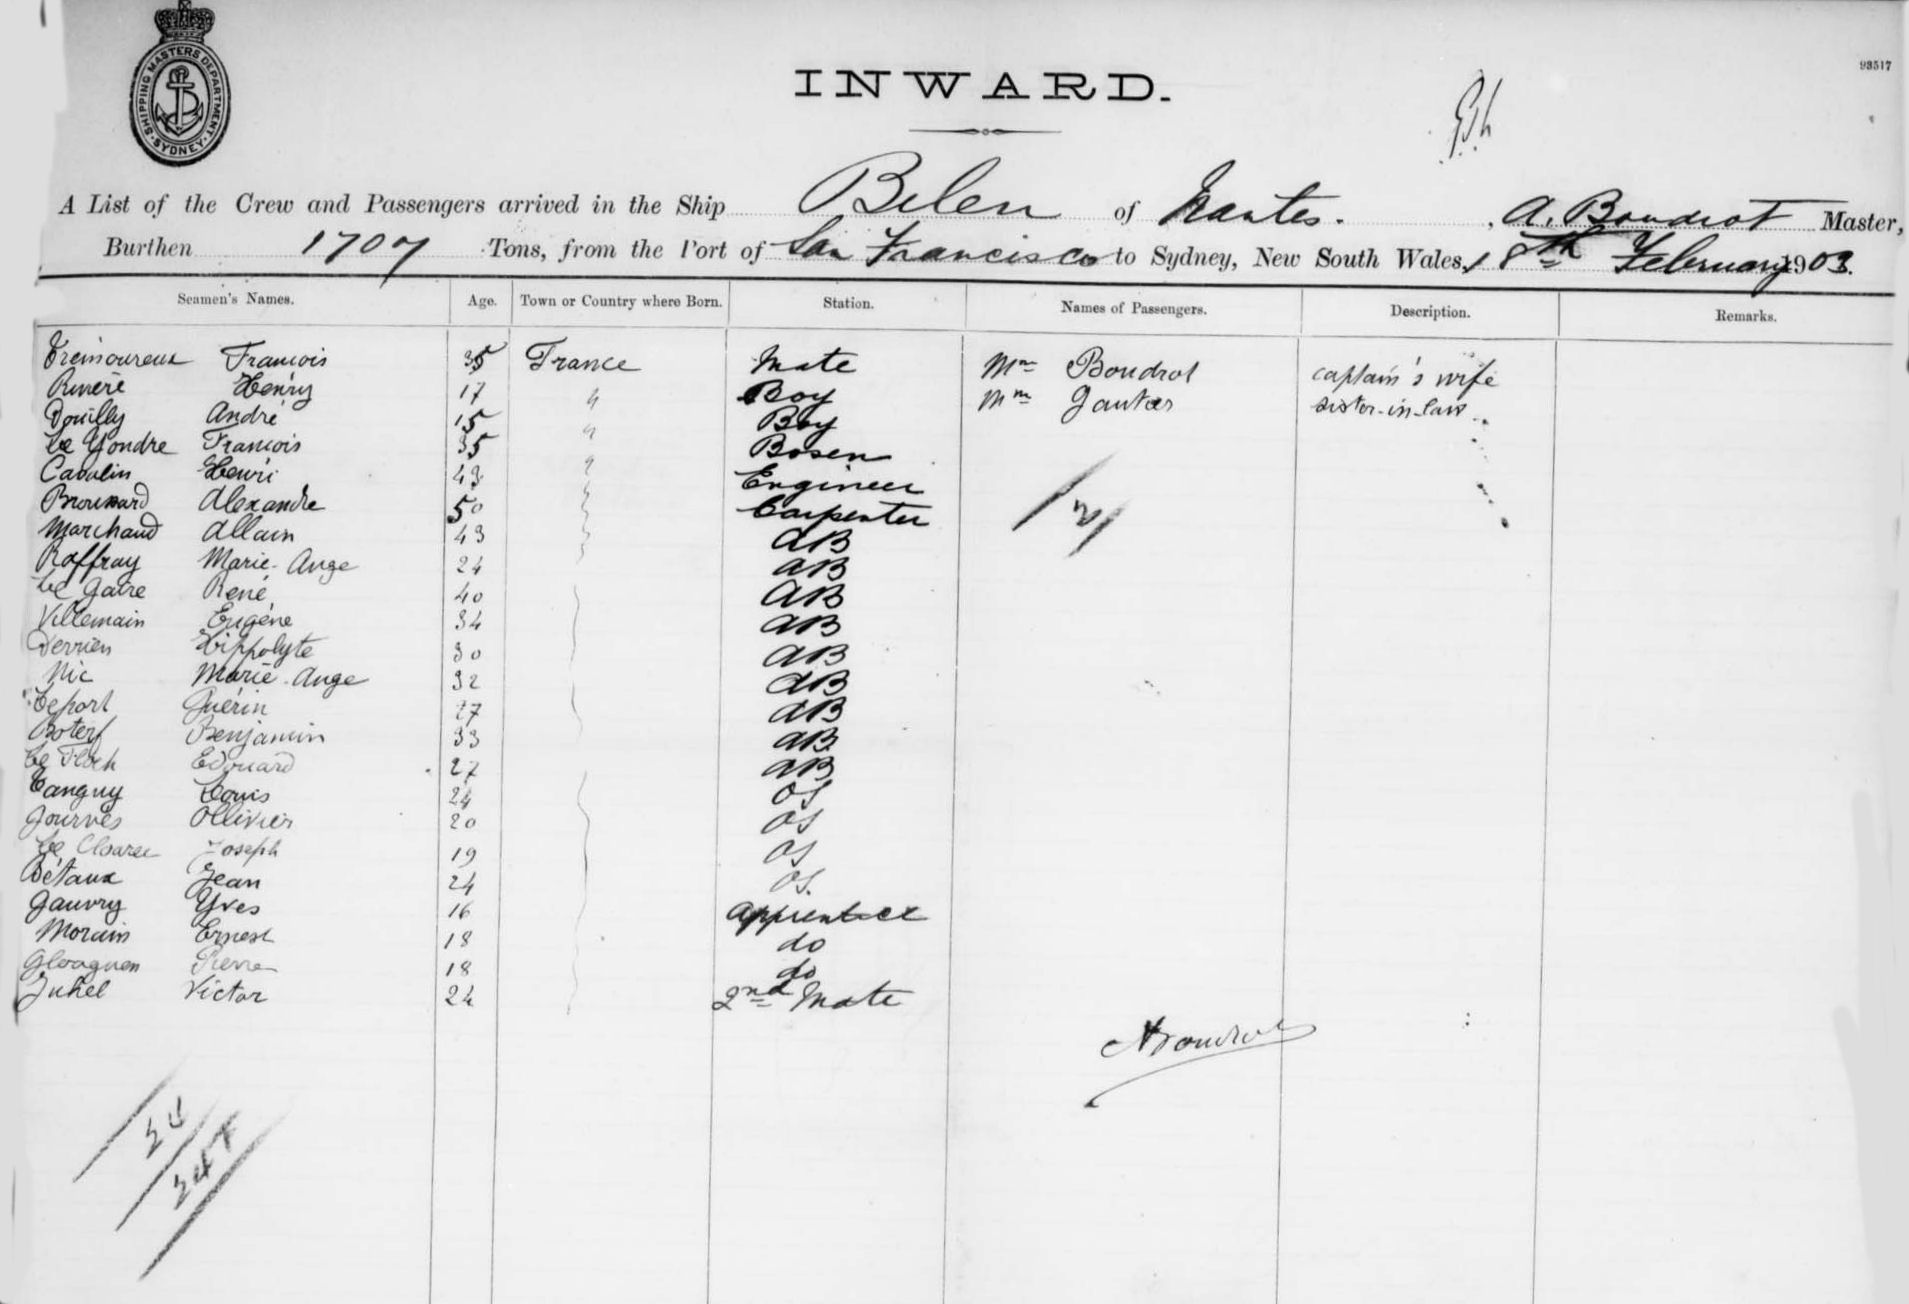 SHIPPING MASTERS DEPARTMENT. SYDNEY.
93517
INWARD.
A List of the Crew and Passengers arrived in the Ship Bilen of Nantes. , A. Boudrot Master,
Burthen 1707 Tons, from the Port of San Francisco to Sydney, New South Wales, 18th February 1903.
Seamen's Names. Age. Town or Country where Born. Station. Names of Passengers. Description. Remarks.
Tremoureux Francois 35 France Mate Mme Boudrot captain's wife
Rivière Henry 17 " Boy Mme Gautier sister-in-law
Douilly André 15 " Boy
Le Gondre Francois 35 " Bosen
Cavalin Henri 43 Engineer
Broussard Alexandre 50 Carpenter
Marchand Allain 43 AB
Raffray Marie-Ange 24 AB
Le Gatre René 40 AB
Villemain Eugène 34 AB
Derrien Hippolyte 30 AB
Nic Marie-Ange 32 AB
Leport Guérin 27 AB
Boterf Benjamin 33 AB
Le Floch Edouard 27 AB
Tanguy Louis 24 OS
Journès Ollivier 20 OS
Le Cloarec Joseph 19 OS
Bétaux Jean 24 OS.
Gauvry Yves 16 Apprentice
Morain Ernest 18 do
Gloaguen Pierre 18 do
Juhel Victor 24 2nd Mate
ABoudrot
24
247